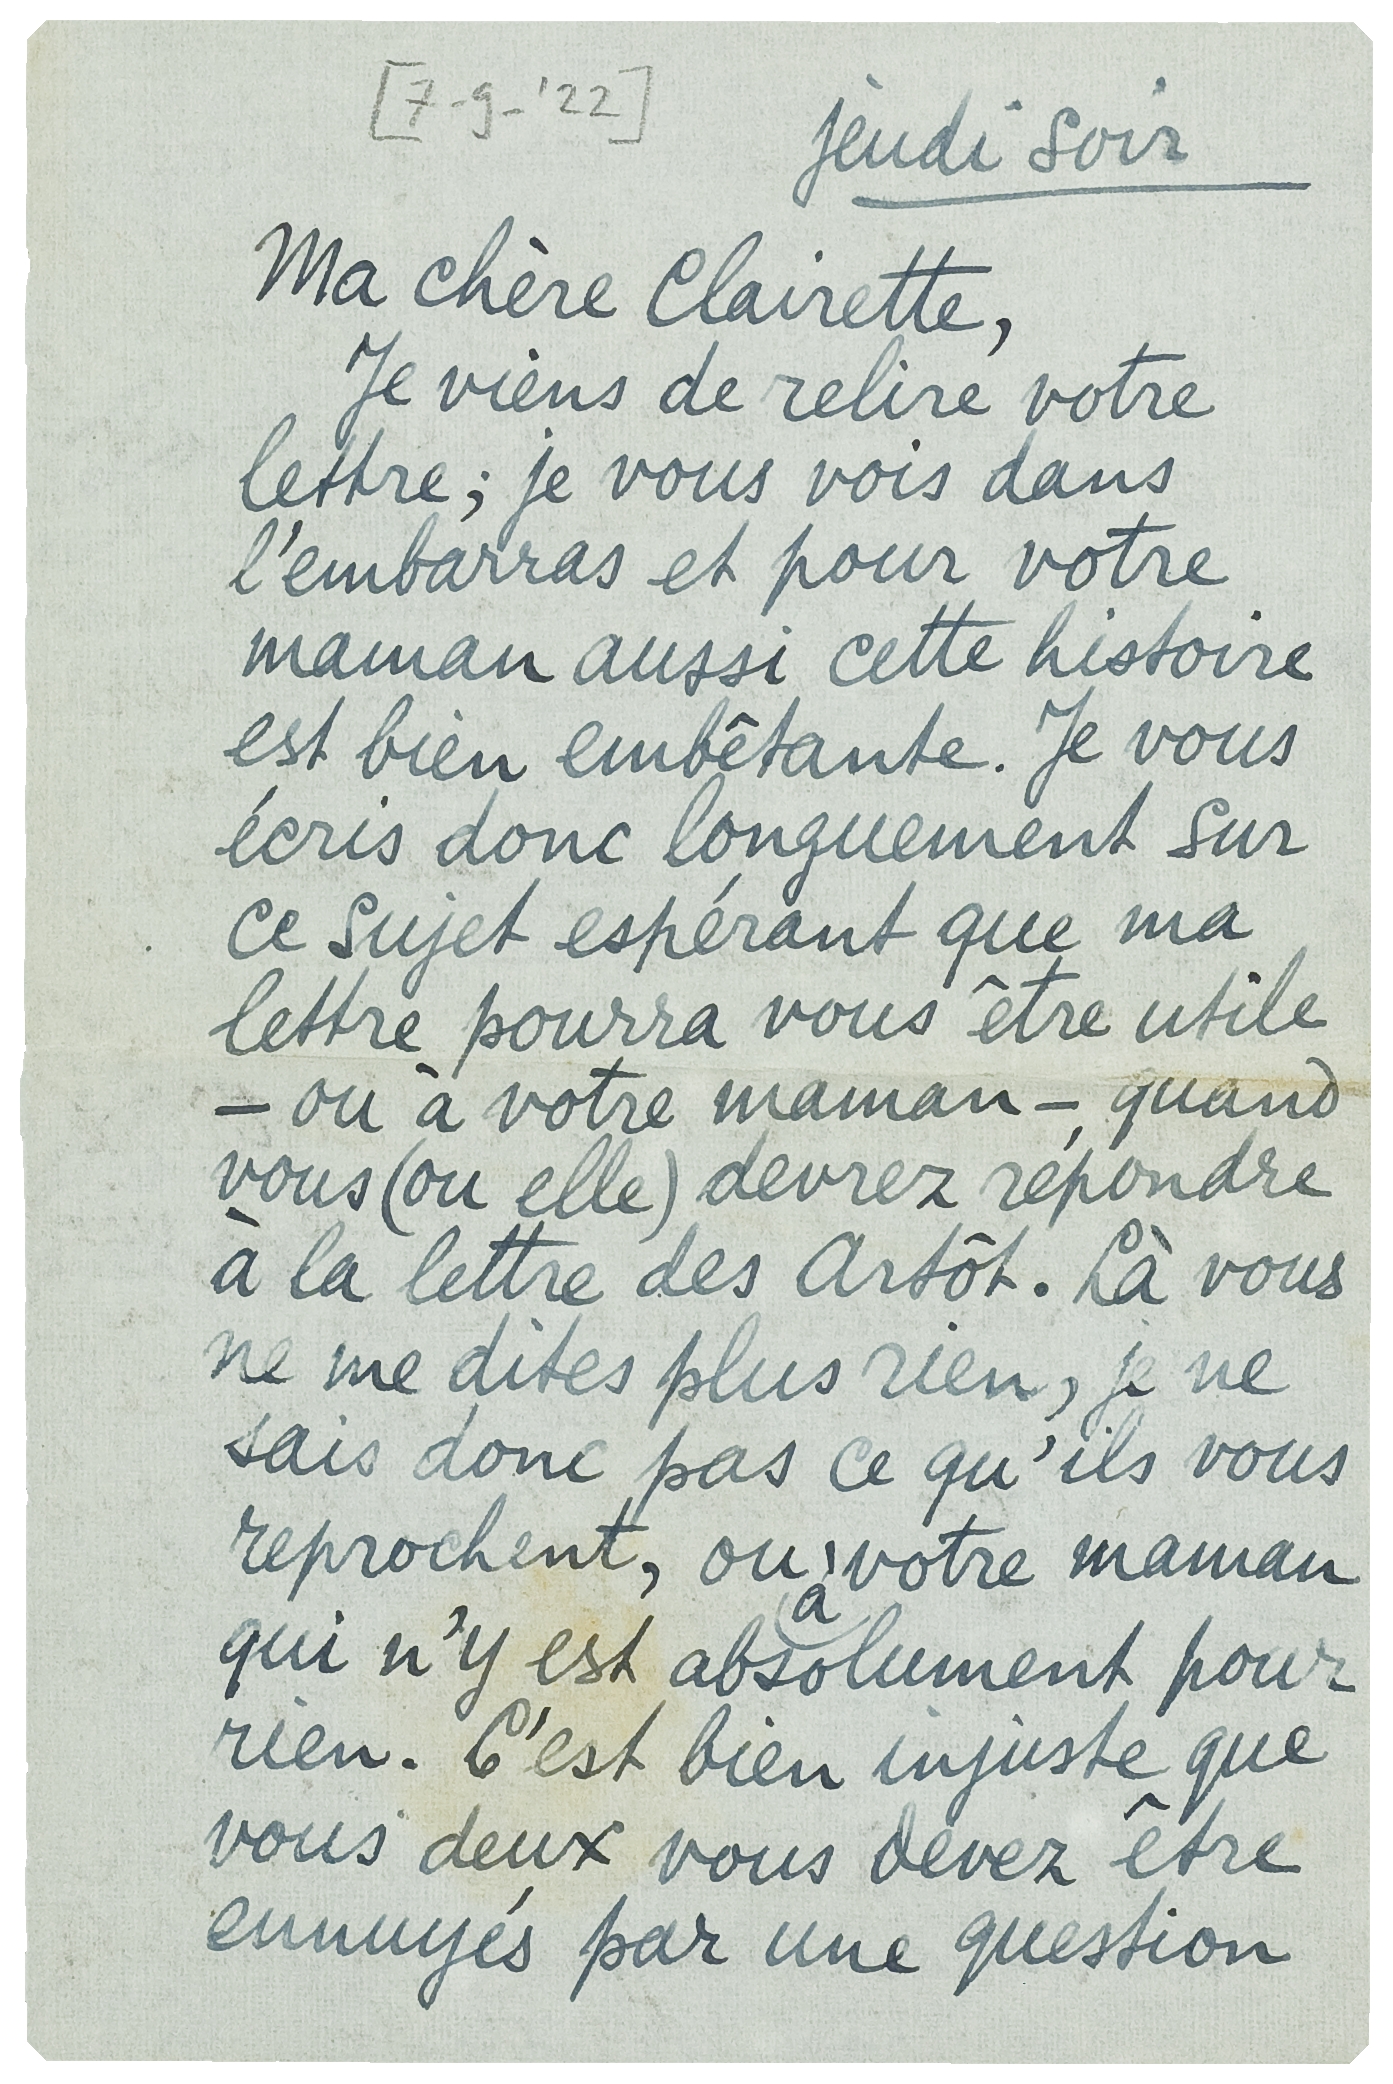 [7-9-'22]
jeudi soir
Ma chère Clairette,
Je viens de relire votre
lettre; je vous vois dans
l'embarras et pour votre
maman aussi cette histoire
est bien embêtante. Je vous
écris donc longuement sur
ce sujet espérant que ma
lettre pourra vous être utile
— ou à votre maman —, quand
vous (ou elle) devrez répondre
à la lettre des Artôt. Là vous
ne me dites plus rien, je ne
sais donc pas ce qu'ils vous
reprochent, ou à votre maman
qui n'y est absolument pour
rien. C'est bien injuste que
vous deux vous devez être
ennuyés par une question